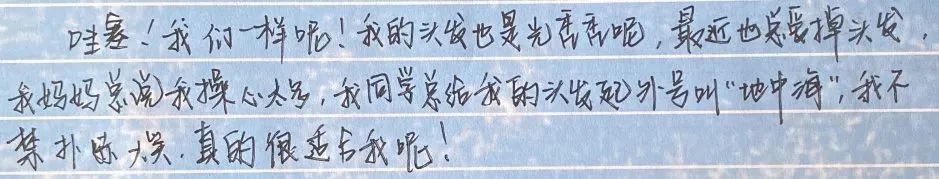 哇塞！我们一样呢！我的头发也是光秃秃呢，最近也总爱掉头发，
我妈妈总说我操心太多，我同学总给我的头发起外号叫“地中海”，我不
禁扑哧一笑，真的很适合我呢！